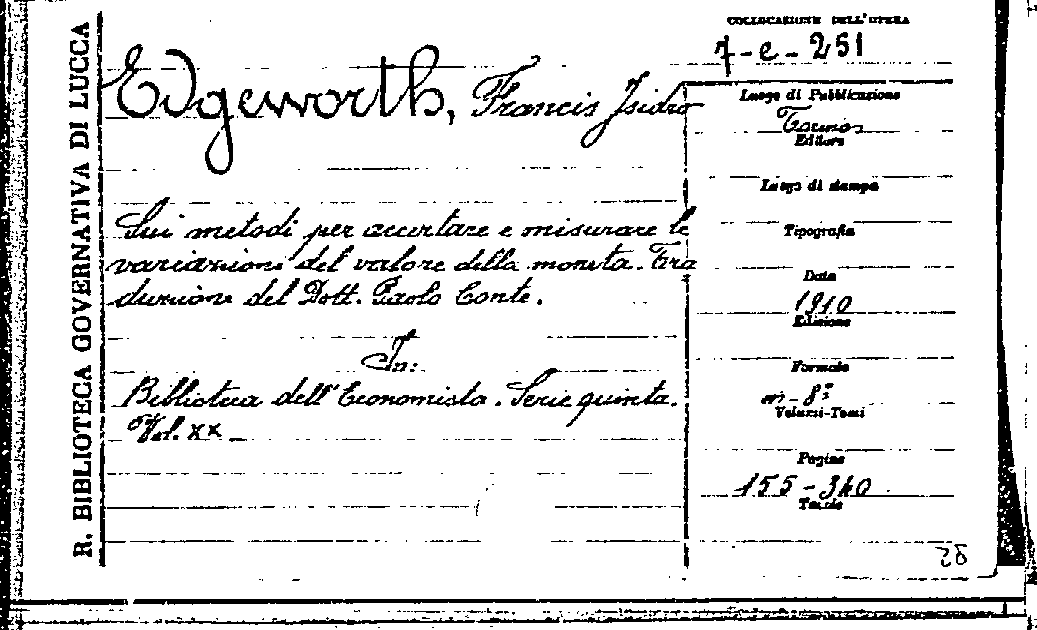 R. BIBLIOTECA GOVERNATIVA DI LUCCA
COLLOCAZIONE DELL'OPERA
7-e-251
Edgeworth, Francis Isidro
Sui metodi per accertare e misurare le
variazioni del valore della moneta. Tra
duzione del Dott. Paolo Conte.
In:
Biblioteca dell'Economista. Serie quinta.
Vol. XX
Luogo di Pubblicazione
Torino
Editore
Luogo di stampa
Tipografia
Data
1910
Edizione
Formato
in-8°
Volumi-Tomi
Pagine
155-340
Tavole
28